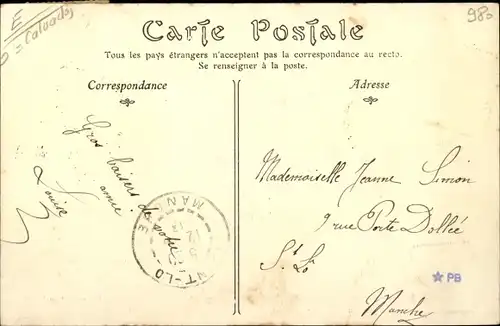 E
= Calvados
98.
Carte Postale
Tous les pays étrangers n'acceptent pas la correspondance au recto.
Se renseigner à la poste.
Correspondance
Adresse
Gros baisers de votre
amie
Louise
ST-LO
MAN
Mademoiselle Jeanne Simon
9 rue Porte Dollée
St Lô
Manche
PB